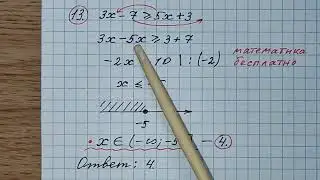 13. 3x - 7 ≥ 5x + 3
3x - 5x ≥ 3 + 7
математика
бесплатно
-2x 10 | : (-2)
x ≤ -
-5
• x ∈ (-∞; -5 — 4.
Ответ: 4.